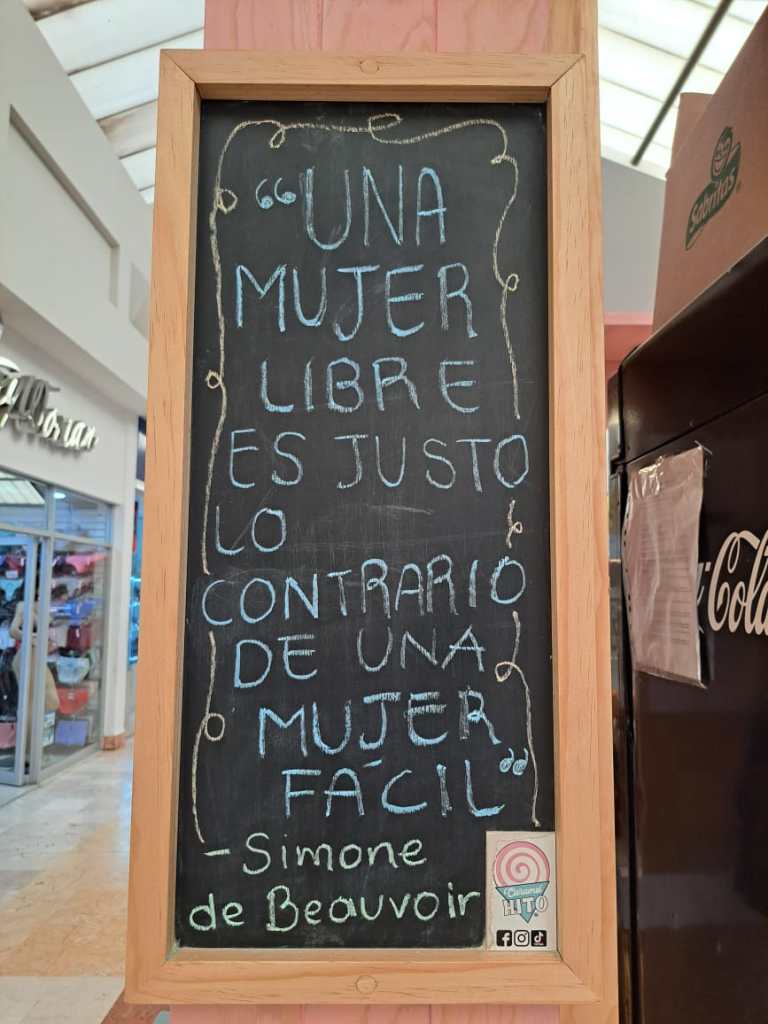 “UNA
MUJER
LIBRE
ES JUSTO
LO
CONTRARIO
DE UNA
MUJER
FÁCIL”
-Simone
de Beauvoir
Caramel
HITO
Sabritas
Cola